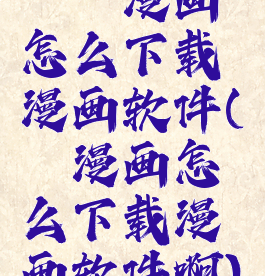 漫画
怎么下载
漫画软件(
漫画怎
么下载漫
画软件啊)